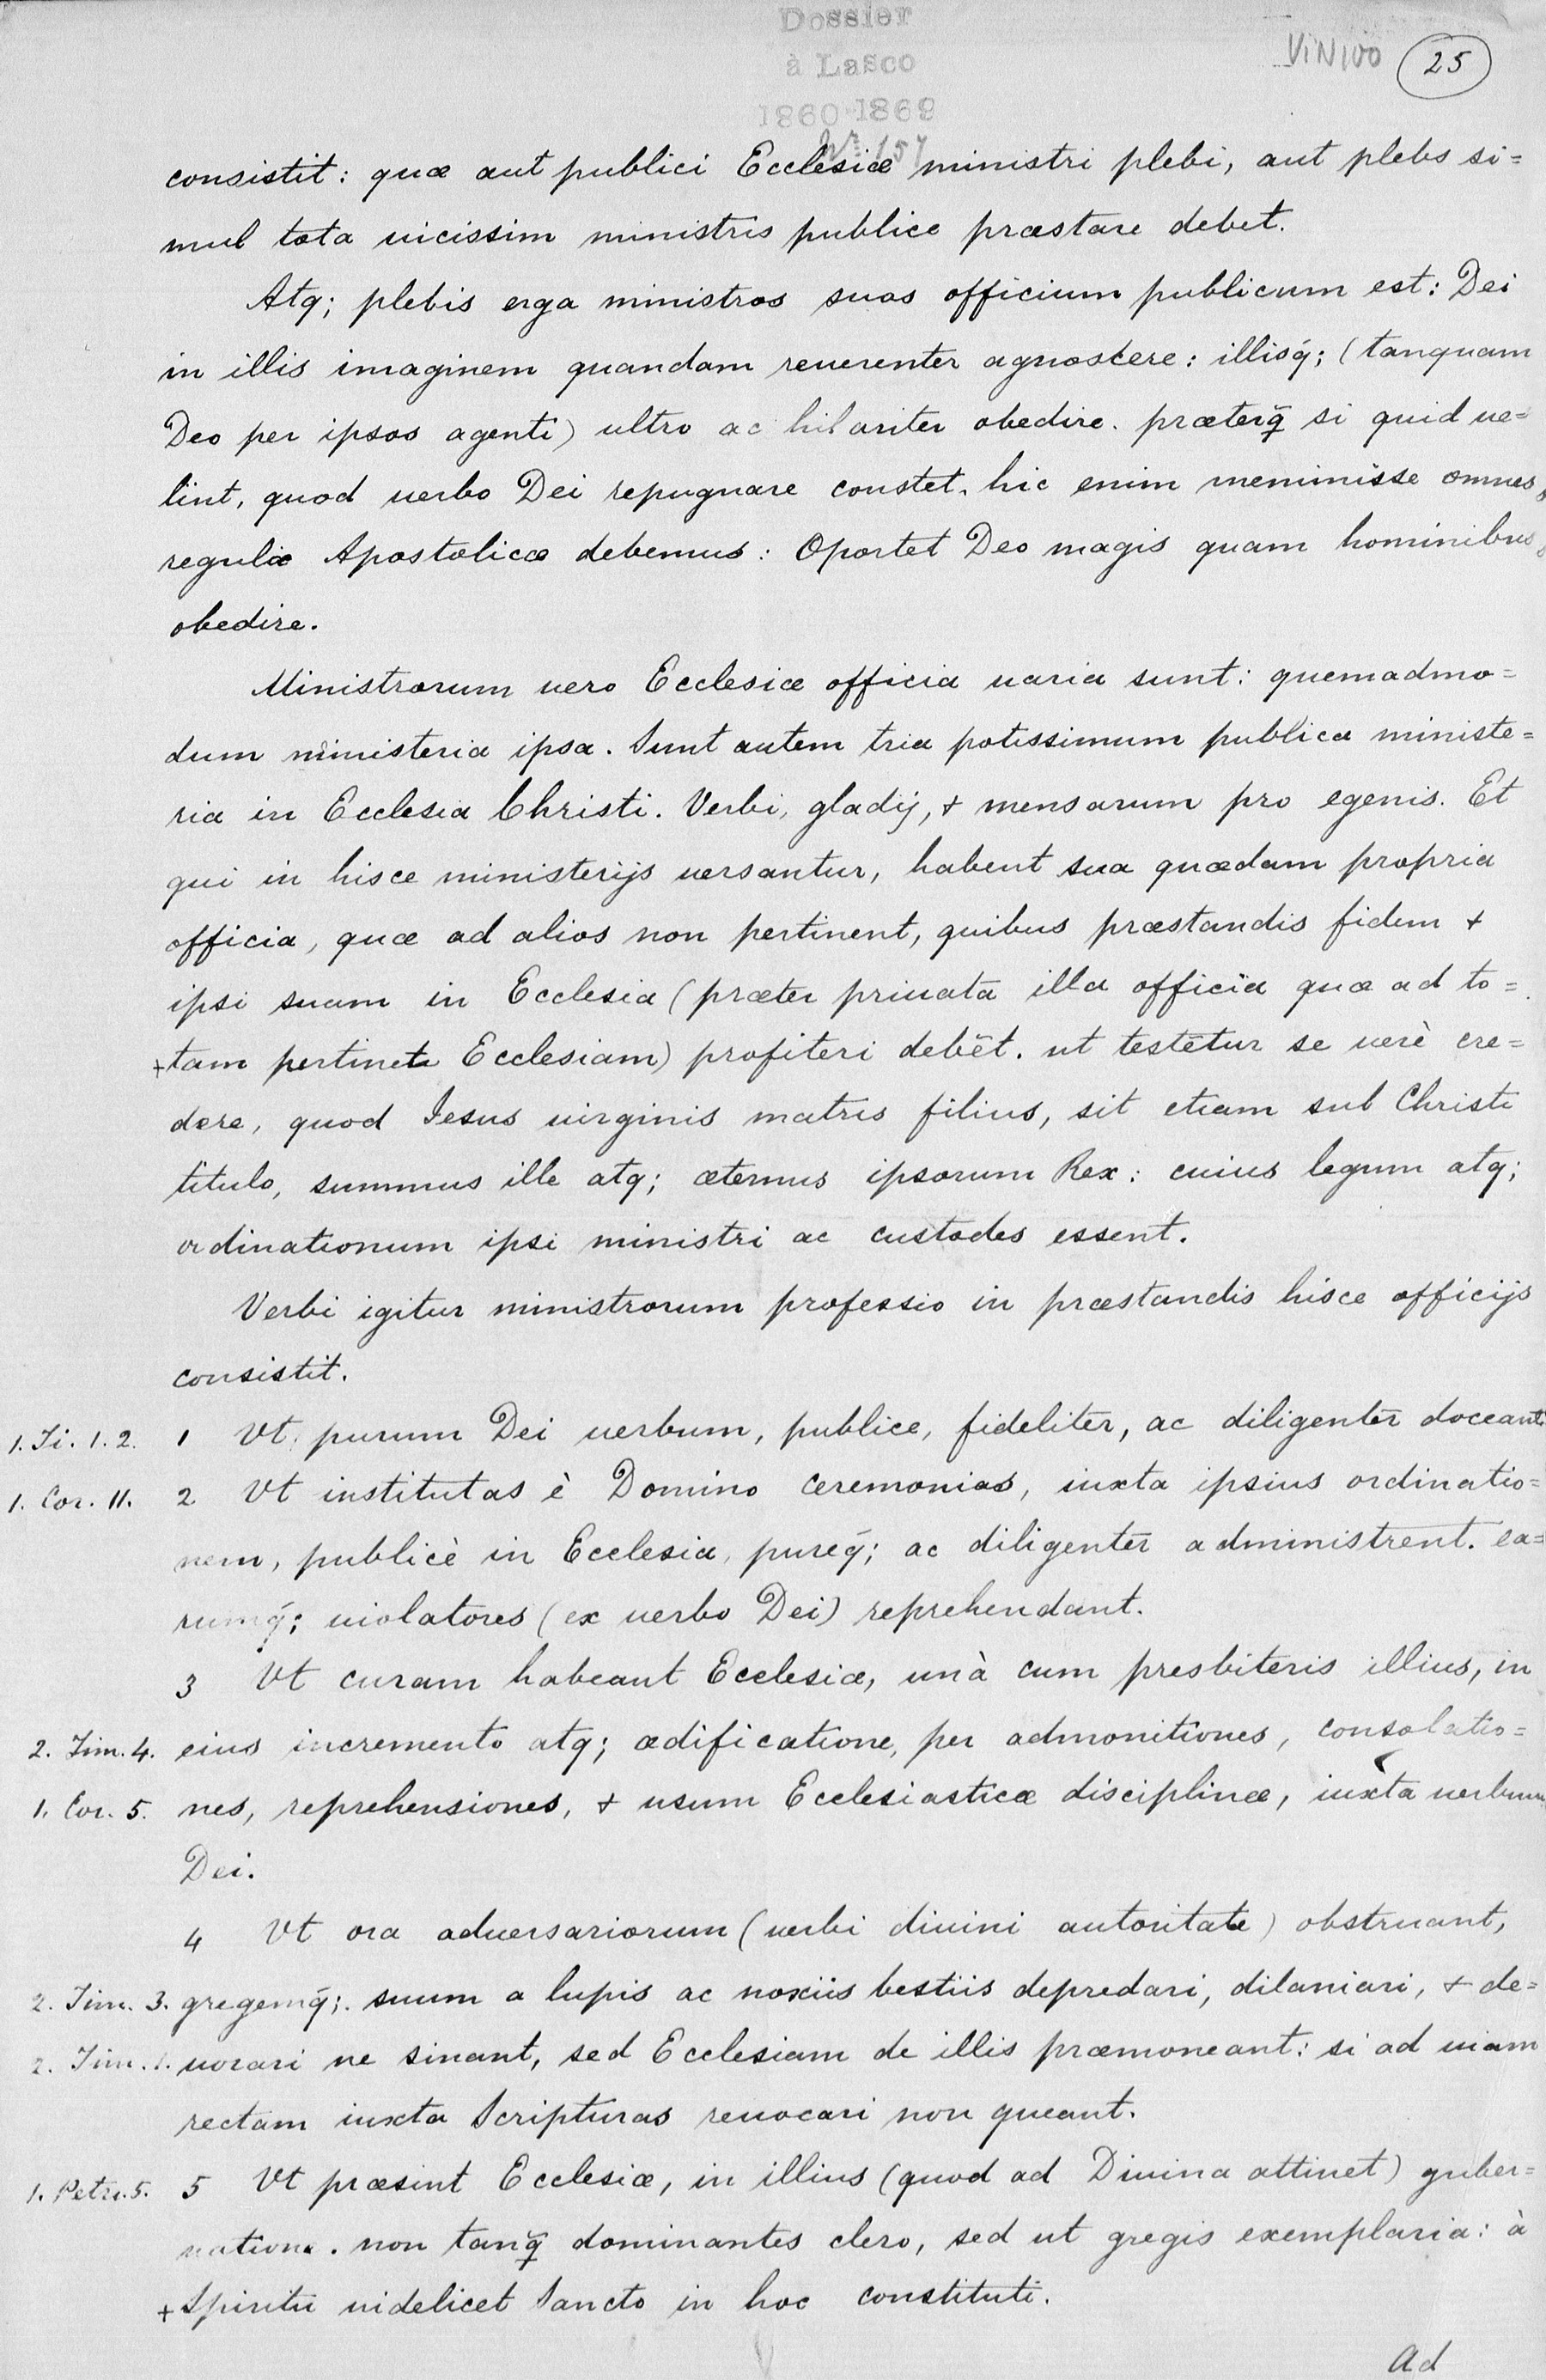 Dossier
à Lasco
1860-1869
Nr. 157
25
consistit: quæ aut publici Ecclesiæ ministri plebi, aut plebs si=
mul tota uicissim ministris publice præstare debet.
Atq; plebis erga ministros suos officium publicum est: Dei
in illis imaginem quandam reuerenter agnoscere: illisq́; (tanquam
Deo per ipsos agenti) ultro ac hilariter obedire. præterq̃ si quid ue=
lint, quod uerbo Dei repugnare constet. hic enim meminisse omnes
regulæ Apostolicæ debemus: Oportet Deo magis quam hominibus
obedire.
Ministrorum uero Ecclesiæ officia uaria sunt: quemadmo=
dum ministeria ipsa. Sunt autem tria potissimum publica ministe=
ria in Ecclesia Christi. Verbi, gladij, & mensarum pro egenis. Et
qui in hisce ministerijs uersantur, habent sua quædam propria
officia, quæ ad alios non pertinent, quibus præstandis fidem &
ipsi suam in Ecclesia (præter priuata illa officia quæ ad to=
+tam pertinēt Ecclesiam) profiteri debēt. ut testētur se uerè cre=
dere, quod Iesus uirginis matris filius, sit etiam sub Christi
titulo, summus ille atq; æternus ipsorum Rex: cuius legum atq;
ordinationum ipsi ministri ac custodes essent.
Verbi igitur ministrorum professio in præstandis hisce officijs
consistit.
1. Ti. 1. 2. 1 Vt purum Dei uerbum, publice, fideliter, ac diligenter doceant
1. Cor. 11. 2 Vt institutas è Domino ceremonias, iuxta ipsius ordinatio=
nem, publicè in Ecclesia, pureq́; ac diligenter administrent. ea=
rumq́; uiolatores (ex uerbo Dei) reprehendant.
3 Vt curam habeant Ecclesiæ, unà cum presbiteris illius, in
2. Tim. 4. eius incremento atq; ædificatione, per admonitiones, consolatio=
1. Cor. 5. nes, reprehensiones, & usum Ecclesiasticæ disciplinæ, iuxta uerbum
Dei.
4 Vt ora aduersariorum (uerbi diuini autoritate) obstruant,
2. Tim. 3. gregemq́; suum a lupis ac noxiis bestiis depredari, dilaniari, & de=
2. Tim. 1. uorari ne sinant, sed Ecclesiam de illis præmoneant: si ad uiam
rectam iuxta Scripturas reuocari non queant.
1. Petri. 5. 5 Vt præsint Ecclesiæ, in illius (quod ad Diuina attinet) guber=
natione. non tanq̃ dominantes clero, sed ut gregis exemplaria: à
+Spiritu uidelicet Sancto in hoc constituti.
Ad